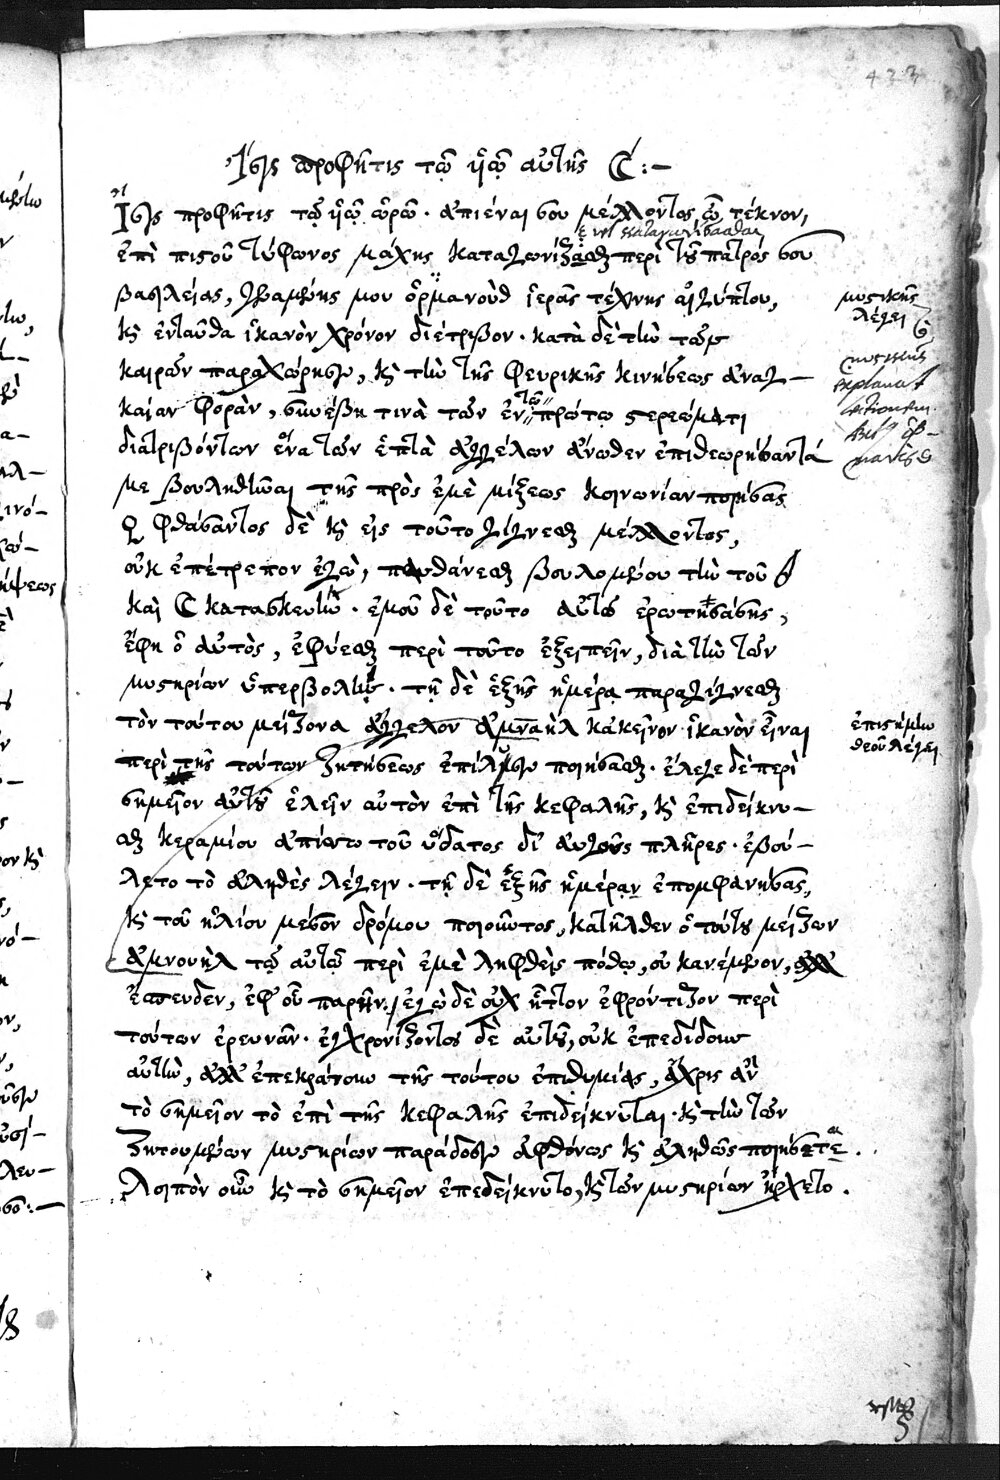 433
Ἶσις προφῆτις τῷ υἱῷ αὐτῆς
Ἶσις προφῆτις τῷ υἱῷ ὥρῳ. ἀπιέναι σου μέλλοντος, ὦ τέκνον,
ἐπὶ πιστοῦ τύφωνος μάχης καταγωνίζεσθαι περὶ τοῦ πατρός σου
βασιλείας, γεναμένης μου ὁρμανοὺδ ἱερᾶς τέχνης αἰγύπτου,
καὶ ἐνταῦθα ἱκανὸν χρόνον διέτριβον. κατὰ δὲ τὴν τῶν
καιρῶν παραχώρησιν, καὶ τὴν τῆς φευρικῆς κινήσεως ἀναγ-
καίαν φορὰν, συνέβη τινὰ τῶν ἐν τῷ πρώτῳ στερεώματι
διατριβόντων ἕνα τῶν ἑπτὰ ἀγγέλων ἄνωθεν ἐπιθεωρήσαντά
με βουληθῆναι τῆς πρὸς ἐμὲ μίξεως κοινωνίαν ποιῆσαι
φθάσαντος δὲ καὶ εἰς τοῦτο γίγνεσθαι μέλλοντος,
οὐκ ἐπέτρεπον ἐγὼ, πυνθάνεσθαι βουλομένου τὴν τοῦ
καὶ κατασκευὴν. ἐμοῦ δὲ τοῦτο αὐτῷ ἐρωτησάσης,
ἔφη ὁ αὐτὸς, ἐφίεσθαι περὶ τοῦτο ἐξειπεῖν, διὰ τὴν τῶν
μυστηρίων ὑπερβολὴν. τῇ δὲ ἑξῆς ἡμέρᾳ παραγίγνεσθαι
τὸν τούτου μείζονα ἄγγελον ἀμναὴλ κἀκεῖνον ἱκανὸν εἶναι
περὶ τῆς τούτων ζητήσεως ἐπίλυσιν ποιήσασθαι. ἔλεγε δὲ περὶ
σημεῖον αὐτοῦ ἔχειν αὐτὸν ἐπὶ τῆς κεφαλῆς, καὶ ἐπιδείκνυ-
σθαι κεραμίου ἀπίσωτο τοῦ ὕδατος δι' αὐγοῦς πλῆρες. ἐβού-
λετο τὸ ἀληθὲς λέγειν. τῇ δὲ ἑξῆς ἡμέραν ἐπομφανήσας,
καὶ τοῦ ἡλίου μέσον δρόμου ποιοῦντος, κατῆλθεν ὁ τούτου μείζων
ἀμνουὴλ τῷ αὐτῷ περὶ ἐμὲ ληφθεὶς πόθῳ, οὐκ ἀνέμενον, ἀλλ'
ἔσπευδεν, ἐφ' οὗ παρῆν. ἐγὼ δὲ οὐχ ἧττον ἐφρόντιζον περὶ
τούτων ἐρευνᾶν. ἐγχρονίζοντος δὲ αὐτοῦ, οὐκ ἐπεδίδουν
αὐτὴν, ἀλλ' ἐπεκράτουν τῆς τούτου ἐπιθυμίας, ἄχρις ἂν
τὸ σημεῖον τὸ ἐπὶ τῆς κεφαλῆς ἐπιδείκνυται. καὶ τὴν τῶν
ζητουμένων μυστηρίων παράδοσιν ἀφθόνως καὶ ἀληθῶς ποιήσεται.
λοιπὸν οὖν καὶ τὸ σημεῖον ἐπεδείκνυτο, καὶ τῶν μυστηρίων ἤρχετο.
μυστικῆς
λέγει
explanat
ἐπιστήμην
θεοῦ λέγει